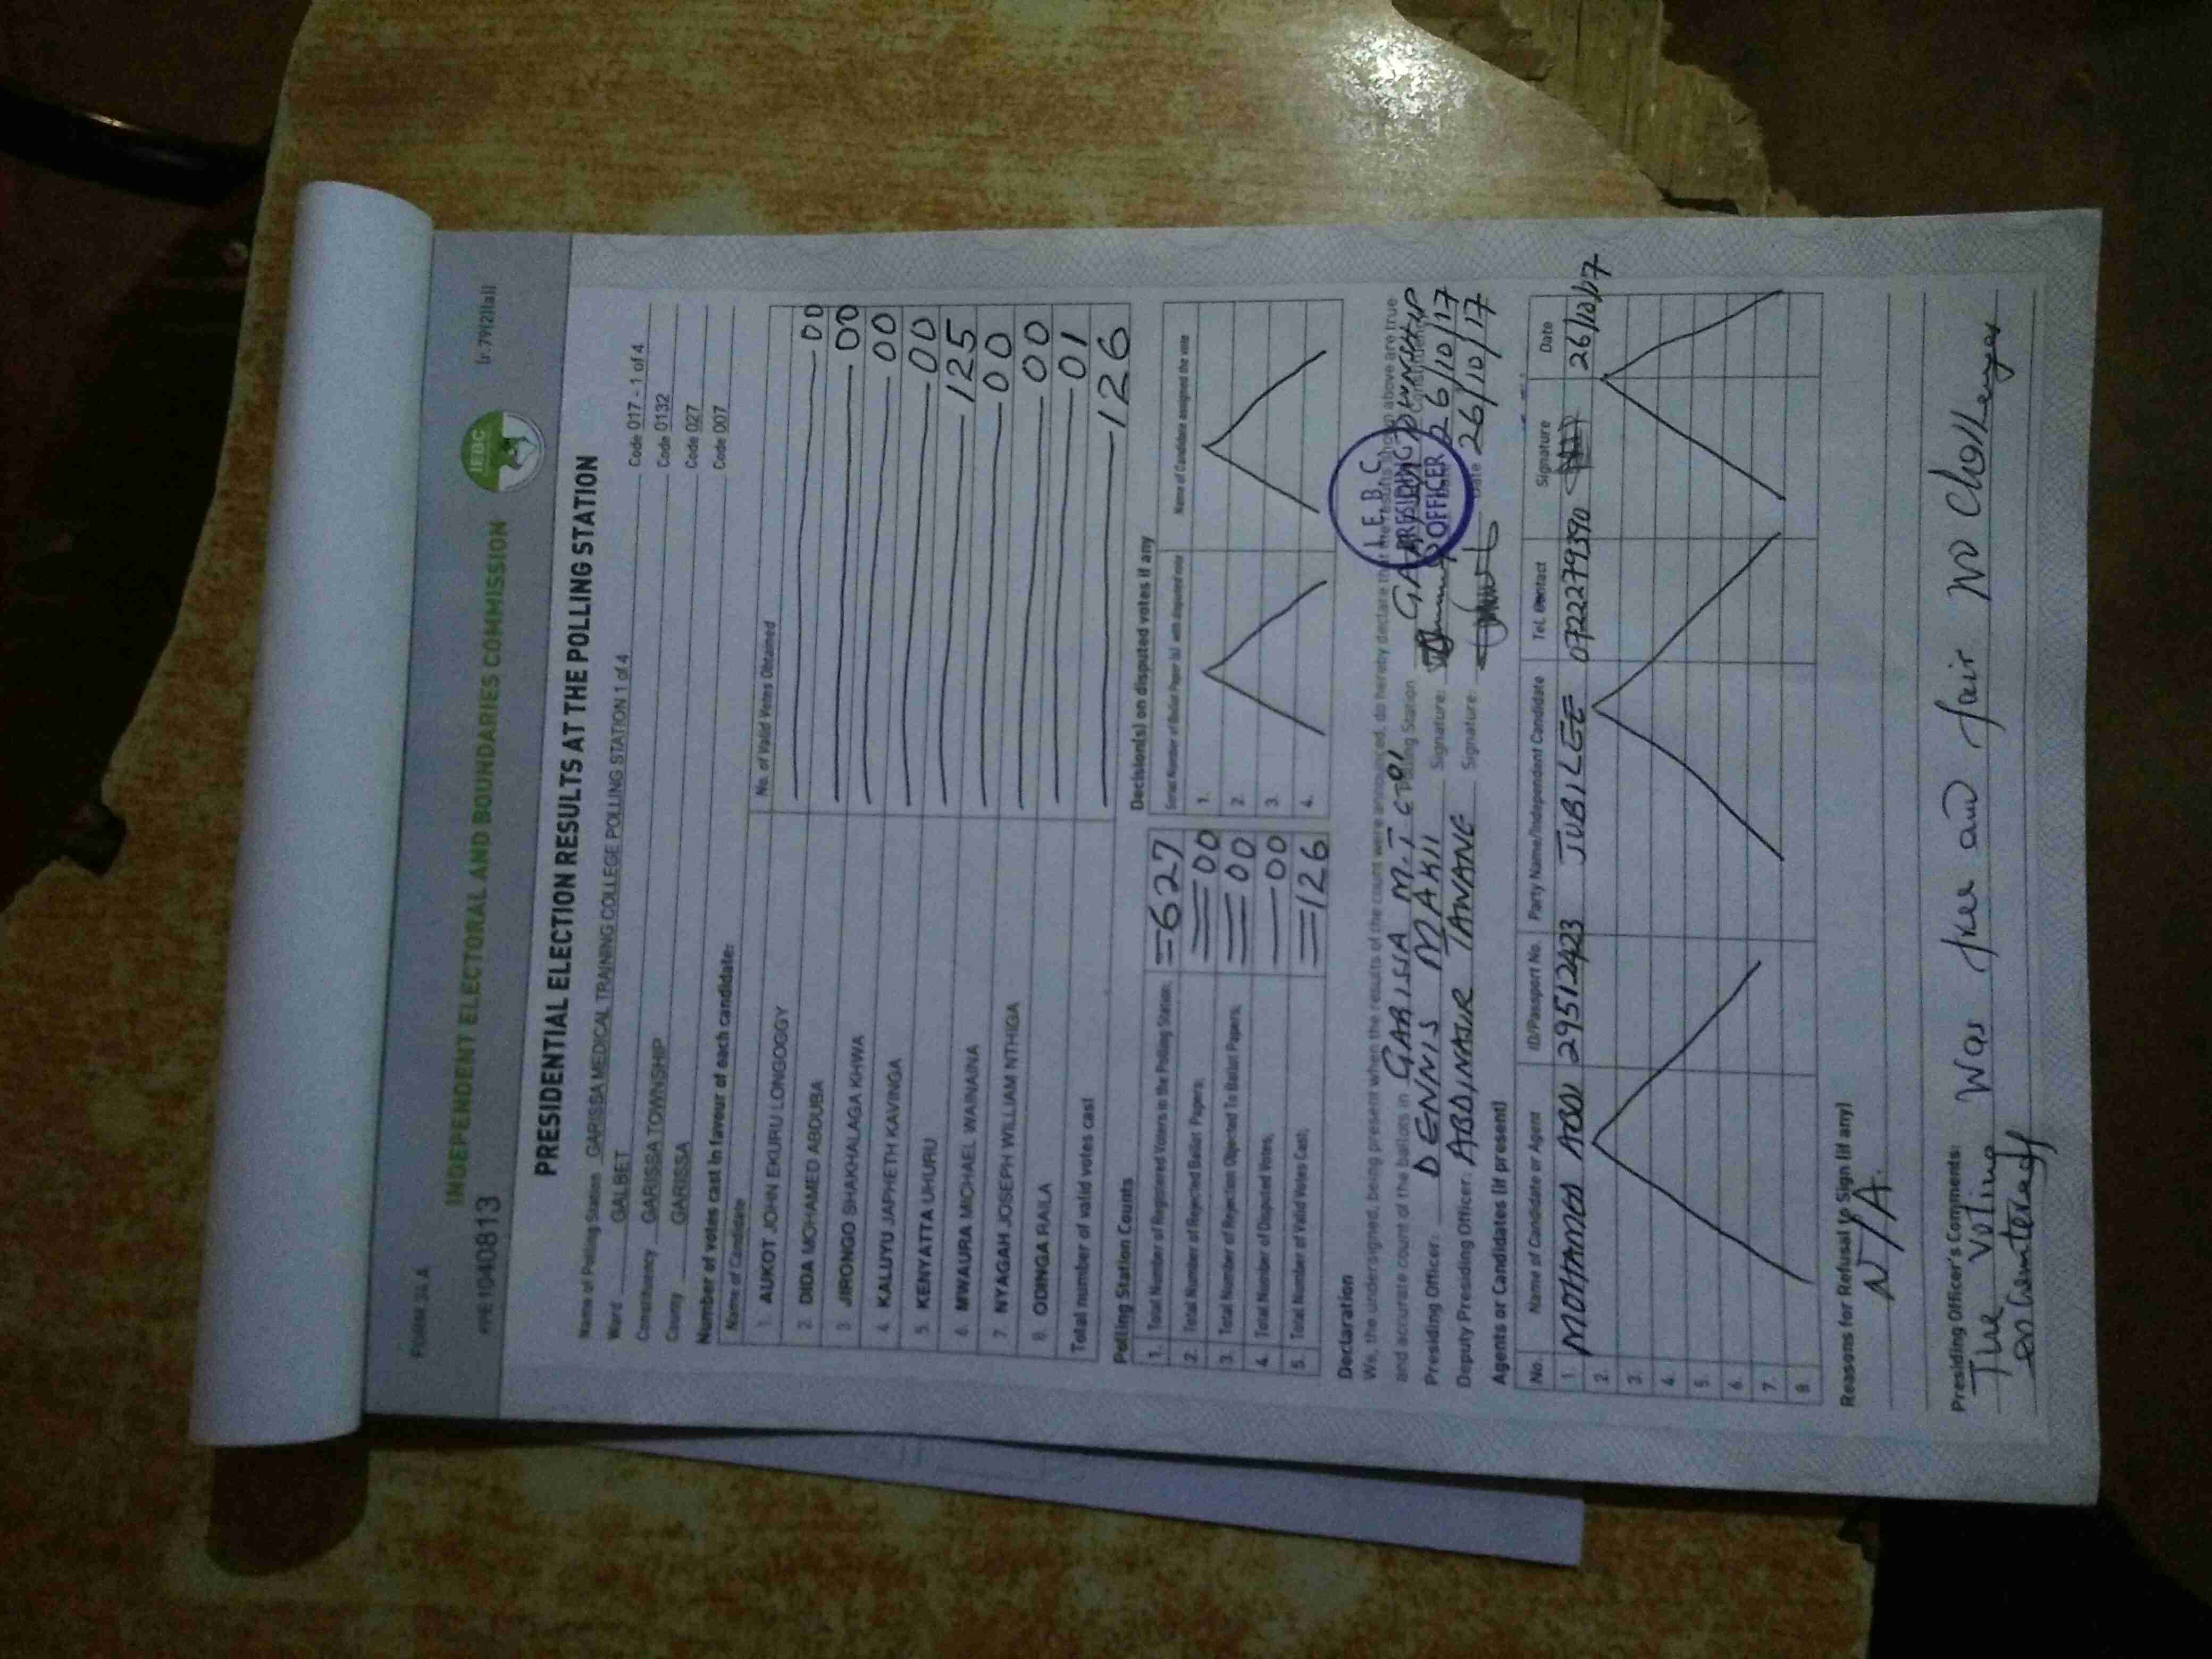 FORM 34 A
INDEPENDENT ELECTORAL AND BOUNDARIES COMMISSION
IEBC
(r.79(2)(a))
#PE1040813
PRESIDENTIAL ELECTION RESULTS AT THE POLLING STATION
Name of Polling Station GARISSA MEDICAL TRAINING COLLEGE POLLING STATION 1 of 4 Code 017 - 1 of 4
Ward GALBET Code 0132
Constituency GARISSA TOWNSHIP Code 027
County GARISSA Code 007
Number of votes cast in favour of each candidate:
Name of Candidate No. of Valid Votes Obtained
1. AUKOT JOHN EKURU LONGOGGY 00
2. DIDA MOHAMED ABDUBA 00
3. JIRONGO SHAKHALAGA KHWA 00
4. KALUYU JAPHETH KAVINGA 00
5. KENYATTA UHURU 125
6. MWAURA MICHAEL WAINAINA 00
7. NYAGAH JOSEPH WILLIAM NTHIGA 00
8. ODINGA RAILA 01
Total number of valid votes cast 126
Polling Station Counts
1. Total Number of Registered Voters in the Polling Station; =627
2. Total Number of Rejected Ballot Papers; =00
3. Total Number of Rejection Objected To Ballot Papers; =00
4. Total Number of Disputed Votes; 00
5. Total Number of Valid Votes Cast; =126
Decision(s) on disputed votes if any
Serial Number of Ballot Paper (s) with disputed vote Name of Candidate assigned the vote
1.
2.
3.
4.
Declaration
We, the undersigned, being present when the results of the count were announced, do hereby declare that the results shown above are true
and accurate count of the ballots in GARISSA M.T.C Polling Station
I.E.B.C.
PRESIDING
OFFICER
Presiding Officer: DENNIS MAKII Signature: 26/10/17
Deputy Presiding Officer: Signature: Date 26/10/17
Agents or Candidates (if present)
No. Name of Candidate or Agent ID/Passport No. Party Name/Independent Candidate Tel. Contact Signature Date
1. MOHAMED ABDI 29512423 JUBILEE 0722279390 26/10/17
2.
3.
4.
5.
6.
7.
8.
Reasons for Refusal to Sign (if any)
N/A.
Presiding Officer's Comments:
The Voting was free and fair no challenges
encountered